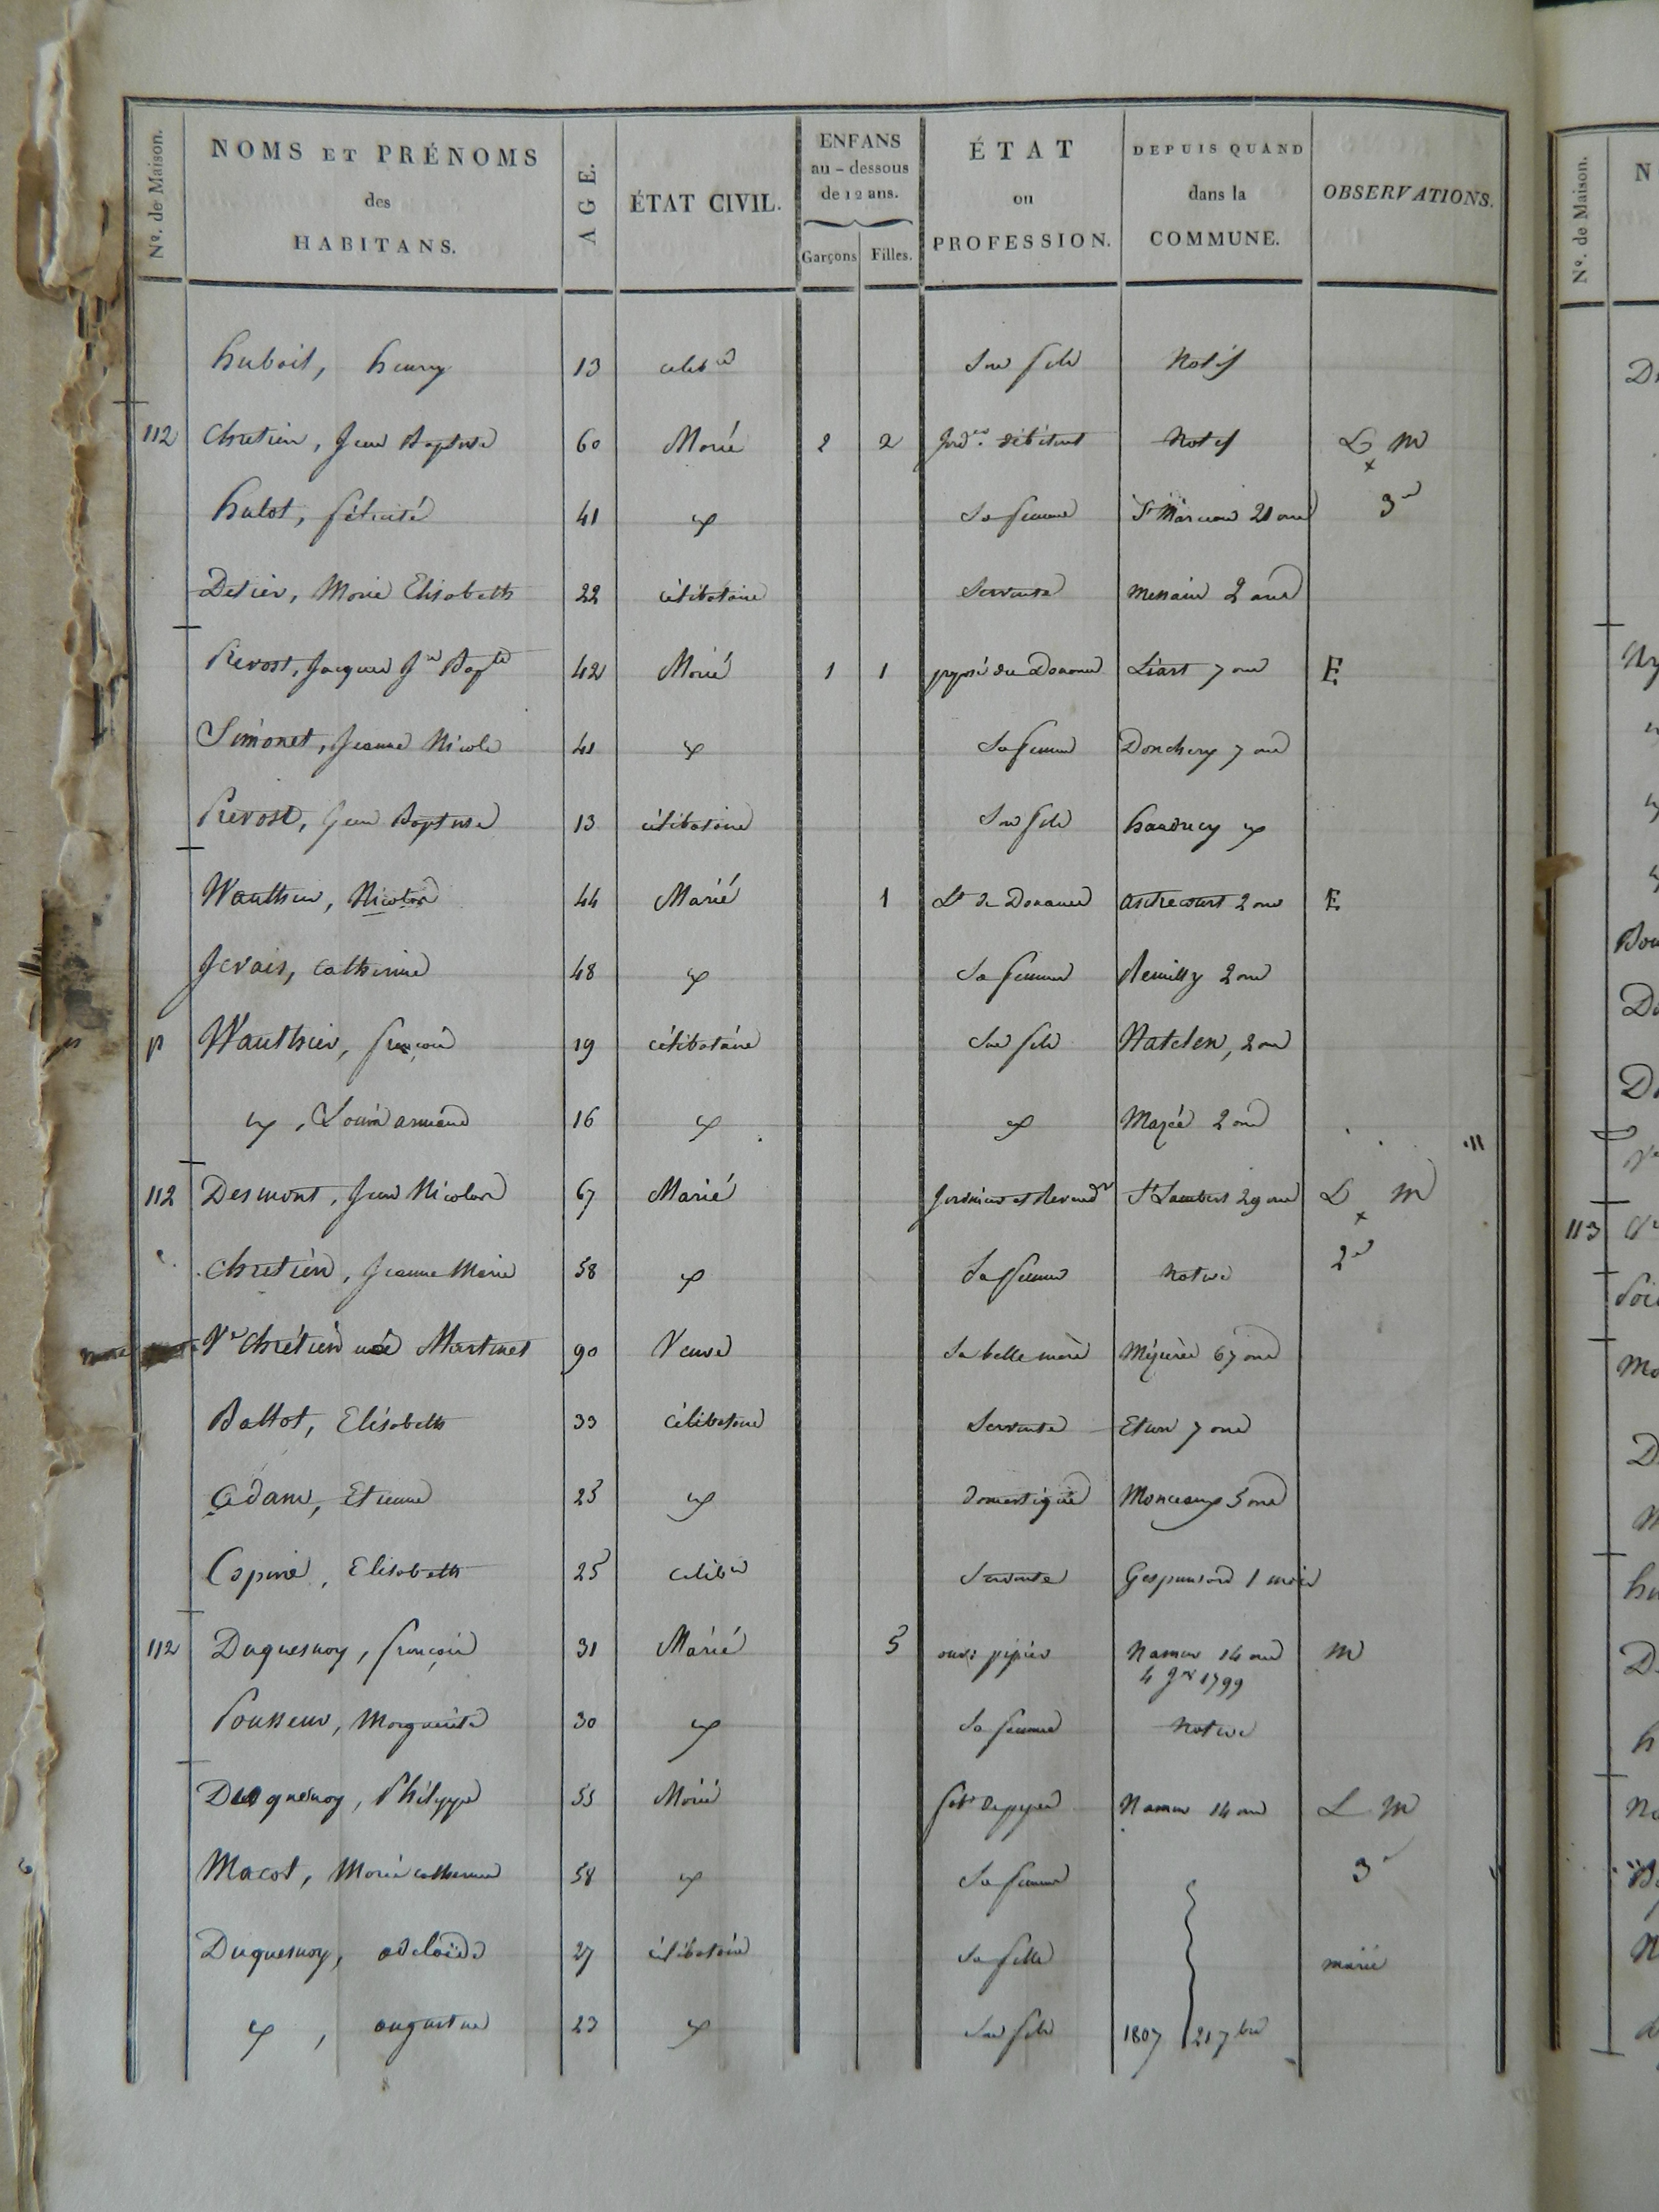 Nº. de Maison. NOMS ET PRÉNOMS des HABITANS. AGE. ÉTAT CIVIL. ENFANS au-dessous de 12 ans. Garçons Filles. ÉTAT ou PROFESSION. DEPUIS QUAND dans la COMMUNE. OBSERVATIONS.
henry 13 celibre Son fils Natif
112 Chretien, Jean Baptiste 60 Marié 2 2 débitant Natif L M
hulot, félicité 41 Sa femme 21 ans 3e
Detier, Marie Elisabeth 22 célibataire Servante Messain 2 ans
Prevost, Jacques Jn Bapte 42 Marié 1 1 préposé des Douanes Liart 7 ans E
Simonet, Jeanne Nicole 41 Sa femme Donchery 7 ans
Prevost, Jean Baptiste 13 célibataire Son fils
Wauthier, Nicolas 44 Marié 1 Lt de Douanes 2 ans E
Gervais, Catherine 48 Sa femme Remilly 2 ans
Wauthier, françois 19 célibataire Son fils 2 ans
, Louis armand 16 2 ans
112 Desmont, Jean Nicolas 67 Marié Jardinier et Revendr St Lambert 29 ans L M
Chretien, Jeanne Marie 58 Sa femme Native 2e
Ve Chrétien née Martinet 90 Veuve Sa belle mère Mézières 67 ans
Battot, Elisabeth 33 Célibataire Servante Etion 7 ans
Adam, Etienne 25 domestique Monceaux 5 ans
Elisabeth 25 Celibre Servante Gespunsard 1 mois
112 Duquesnoy, françois 31 Marié 5 ouvr: pipier Namur 14 ans M
4 1799
Pousseur, Marguerite 30 Sa femme Native
Duquesnoy, Philippe 55 Marié fabt de pipes Namur 14 ans L M
Macot, Marie Catherine 58 Sa femme 3e
Duquesnoy, adelaïde 27 célibataire Sa fille mariée
, augustin 23 Son fils 1807 21 7bre
Nº. de Maison.
113